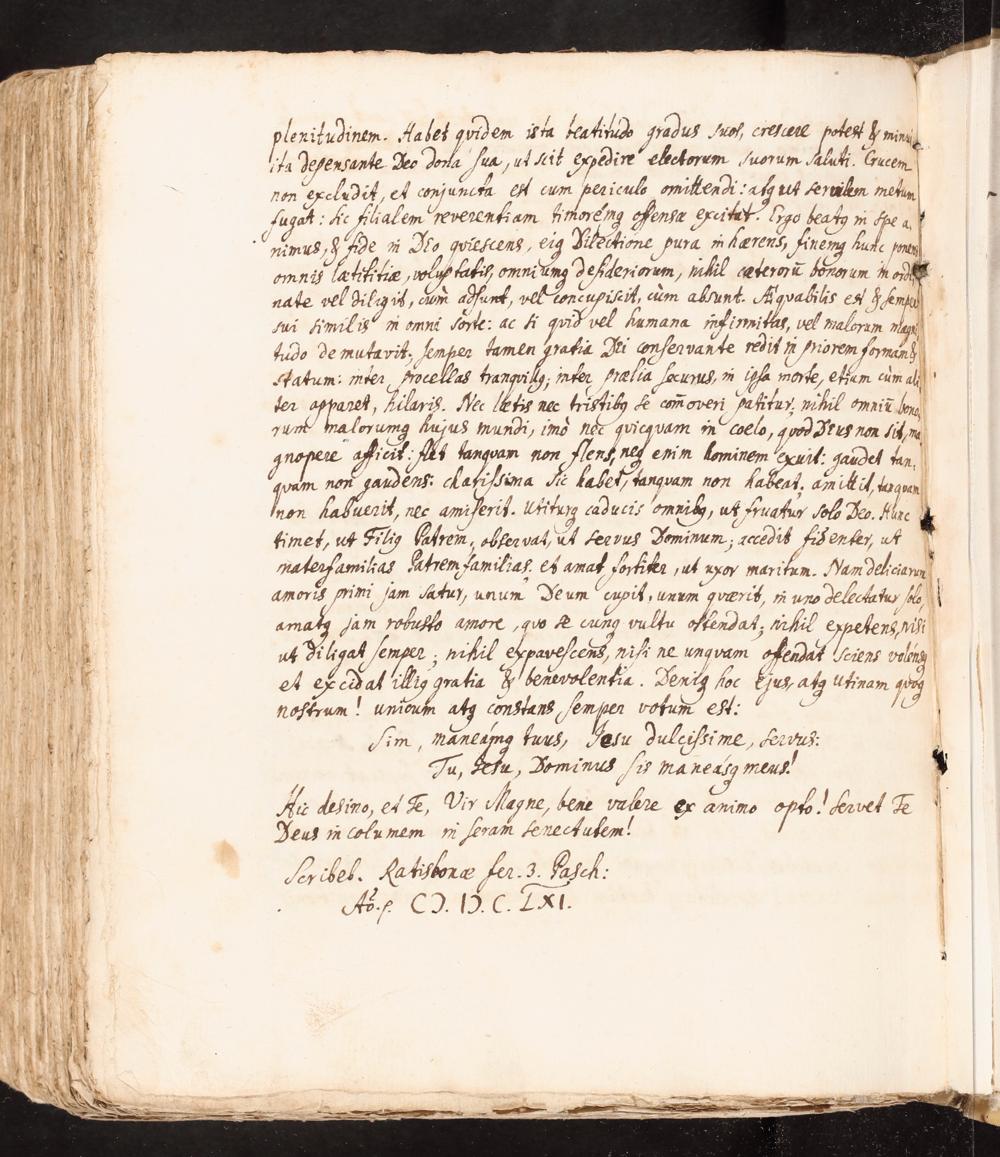 plenitudinem. Habet qvidem ista beatitudo gradus suos, crescere potest & minui
ita depensante Deo dona sua, ut scit expedire electorum suorum saluti. Crucem
non excludit, et conjuncta est cum periculo omittendi: atq ut servilem metum
fugat: sic filialem reverentiam timorémq offensæ excitat. Ergo beatq in spe a,
nimus, & fide in Deo qviescens, eiq Dilectione pura in hærens, finemq hunc ponens
omnis lætititiæ, voluptatis, omniumq desideriorum, nihil cæterorū bonorum inordi
nate vel diligit, cùm adsunt, vel concupiscit, cùm absunt. Æqvabilis est & semper
sui similis in omni sorte: ac si qvid vel humana infirmitas, vel malorum magni
tudo demutavit; semper tamen gratia Dei conservante redit in priorem formam &
statum: inter procellas tranqvillq; inter prælia securus, in ipsa morte, etium cùm ali
ter apparet, hilaris. Nec lætis nec tristibq se com̄overi patitur; nihil omniū bono,
rum malorumq hujus mundi, imò nec qvicqvam in coelo, qvod Deus non sit, ma
gnopere afficit: flet tanqvam non flens, neq enim hominem exuit: gaudet tan,
qvam non gaudens: charissima sic habet, tanqvam non habeat; amittit, tanqvam
non habuerit, nec amiserit. Utiturq caducis omnibq, ut fruatur solo Deo. Hunc
timet, ut Filiq Patrem; observat, ut servus Dominum; accedit fidenter, ut
materfamilias Patremfamilias; et amat fortiter, ut uxor maritum. Nam deliciarum
amoris primi jam satur, unum Deum cupit, unum qværit, in uno delectatur solo,
amatq jam robusto amore, qvo se cunq vultu ostendat; nihil expetens, nisi
ut diligat semper; nihil expavescens, nisi ne unqvam offendat sciens volénsq
et excidat illiq gratia & benevolentia. Deniq hoc ejus, atq utinam qvoq
nostrum! unicum atq constans semper votum est:
Sim, maneámq tuus, Jesu dulcissime, servus:
Tu, Jesu, Dominus sis maneásq meus!
Hic desino, et Te, Vir Magne, bene valere ex animo opto! Servet Te
Deus incolumem in seram senectutem!
Scribeb. Ratisbonæ fer. 3. Pasch:
Aō. CIↃ. IↃ. C. LXI.